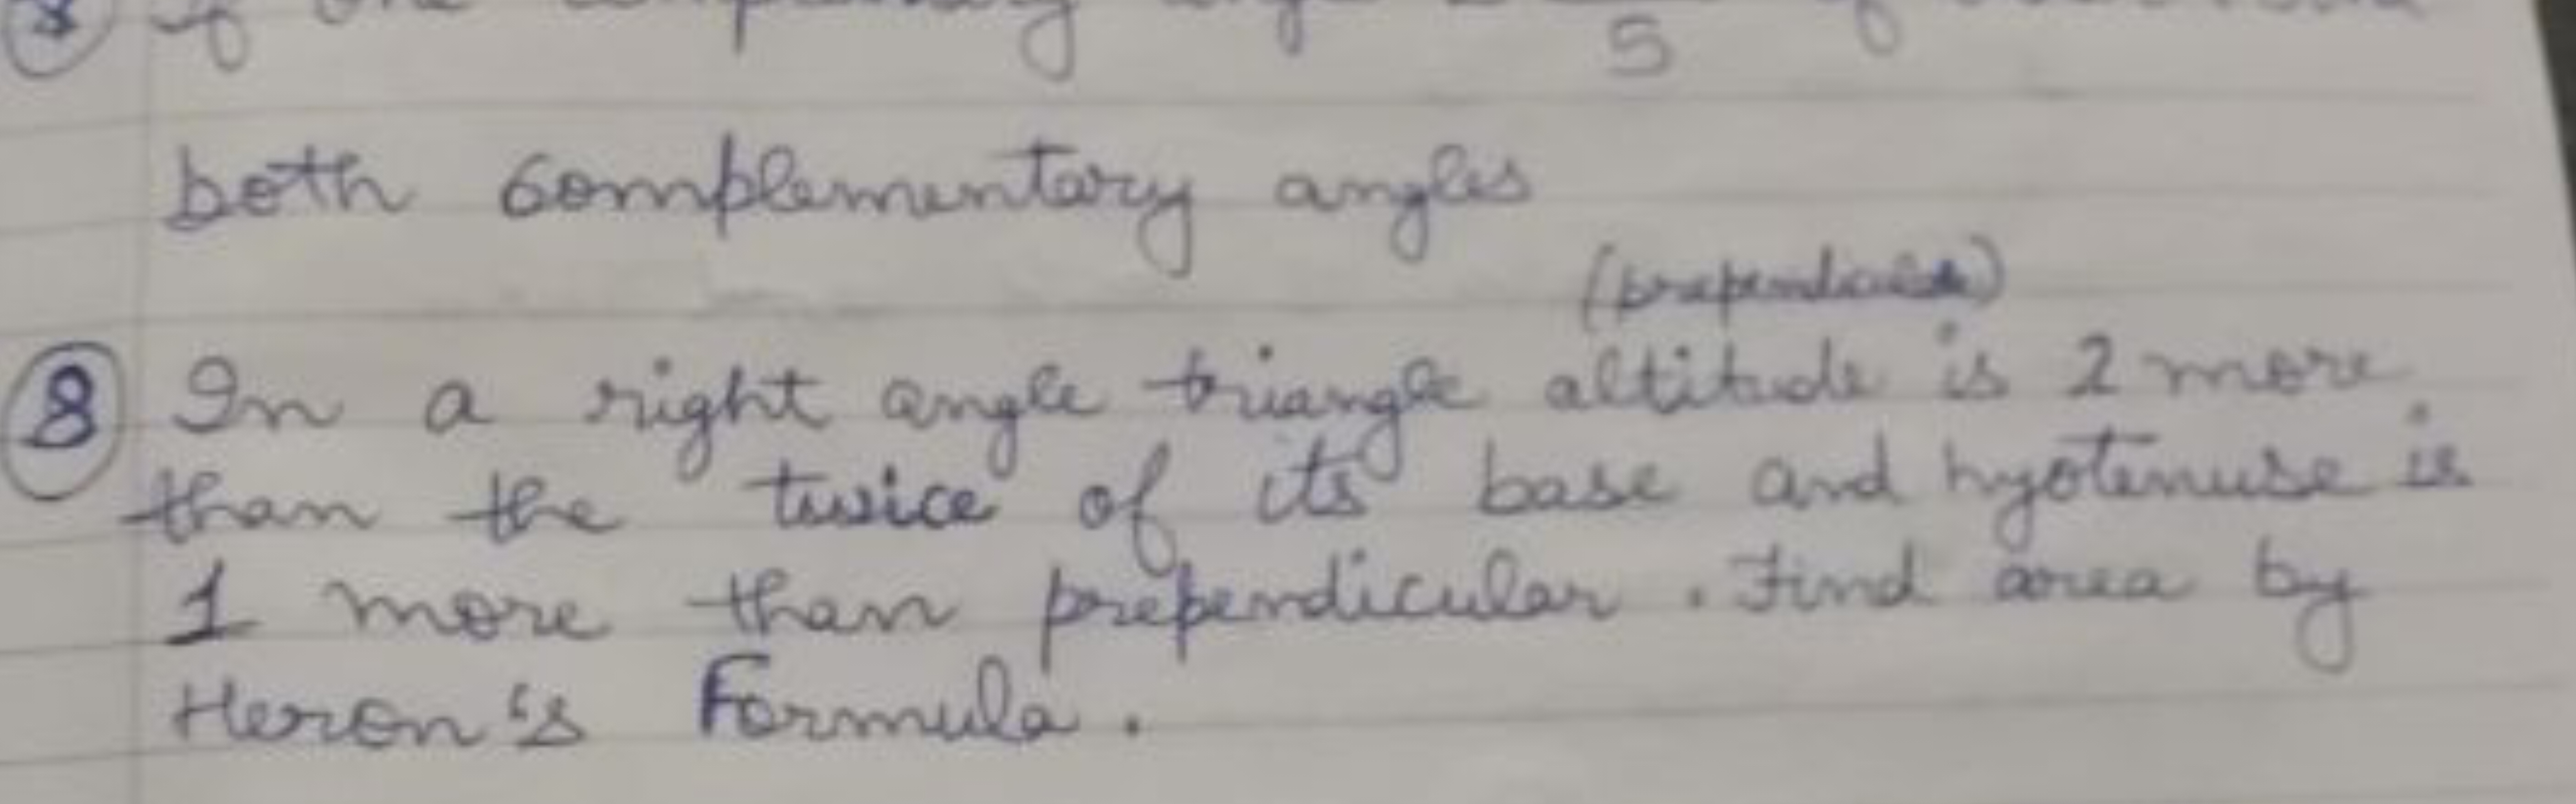 5
both complementary angles
(prependicular)
8 In a right angle triangle altitude is 2 more
than the twice of its base and hyotenuse is
1 more than prependicular. Find area by
Heron's Formula.